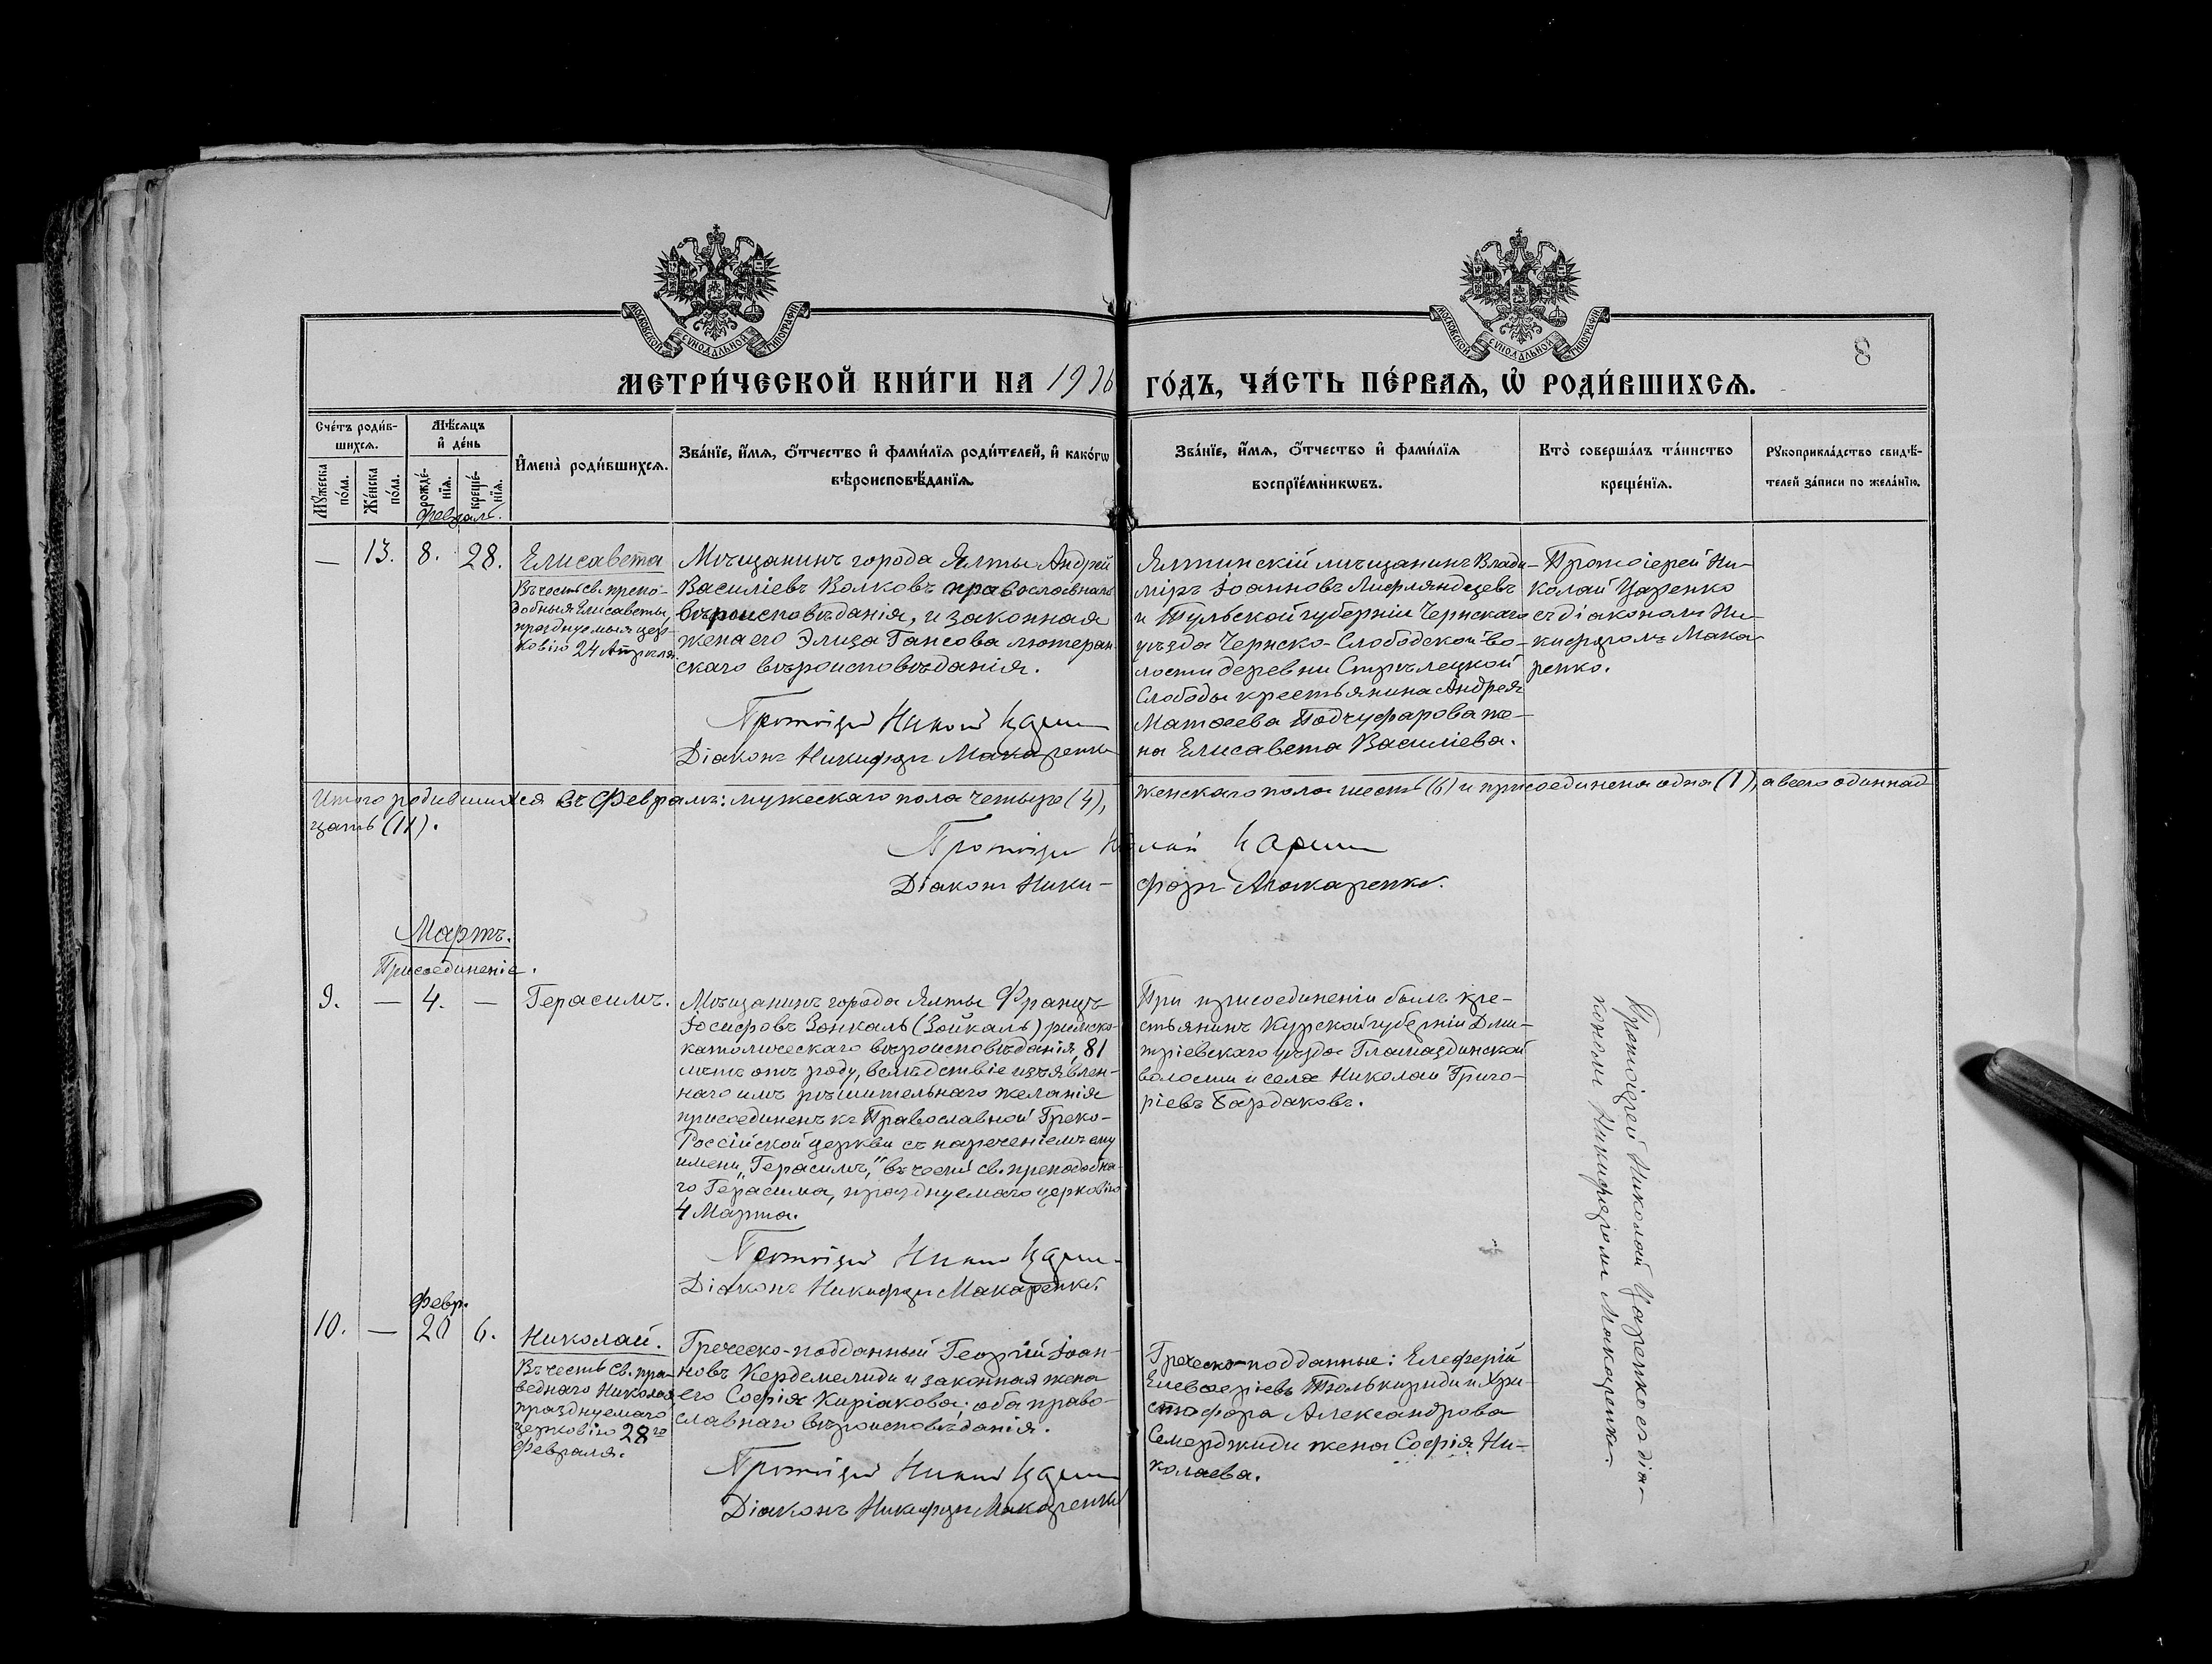 МОСКОВСКОЙ СУНОДАЛЬНОЙ ТИПОГРАФІИ
МОСКОВСКОЙ СУНОДАЛЬНОЙ ТИПОГРАФІИ
8
МЕТРИ́ЧЕСКОЙ КНИ́ГИ НА 1916 ГО́ДЪ, ЧА́СТЬ ПЕ́РВАѦ, Ѡ҆ РОДИ́ВШИХСѦ.
Сче́тъ роди́в-
шихсѧ.
Мѣ́сѧцъ
и҆ де́нь
И҆мена̀ роди́вшихсѧ.
Зва́нїе, и҆́мѧ, ѻ҆́тчество и҆ фами́лїѧ роди́телей, и҆ како́гѡ
вѣроисповѣ́данїѧ.
Зва́нїе, и҆́мѧ, ѻ҆́тчество и҆ фами́лїѧ
воспрїе́мникѡвъ.
Кто̀ соверша́лъ та́инство
креще́нїѧ.
Рꙋкоприкла́дство свидѣ́-
телей за́писи по жела́нїю.
Мꙋ́жеска
по́ла.
Же́нска
по́ла.
рожде́-
нїѧ.
креще́-
нїѧ.
Февраль.
— 13. 8. 28. Елисавета
Въ честь св. препо-
добныя Елисаветы,
празднуемыя цер-
ковію 24 Апрѣля.
Мѣщанинъ города Ялты Андрей
Василіевъ Волковъ православнаго
вѣроисповѣданія, и законная
жена его Элиза Гансова лютеран-
скаго вѣроисповѣданія.
Протоіерей Николай Царенко
Діаконъ Никифоръ Макаренко
Ялтинскій мѣщанинъ Влади-
міръ Іоанновъ Лифляндцевъ
и Тульской губерніи Чернскаго
уѣзда Чернско-Слободской во-
лости деревни Стрѣлецкой
Слободы крестьянина Андрея
Матѳеева Подчуфарова же-
на Елисавета Василіева.
Протоіерей Ни-
колай Царенко
съ діакономъ Ни-
кифоромъ Мака-
ренко.
Итого родившихся въ Февралѣ: мужескаго пола четыре (4), женскаго пола шесть (6) и присоединена одна (1), а всего одиннад-
цать (11).
Протоіерей Николай Царенко
Діаконъ Ники- форъ Макаренко.
Мартъ.
Присоединеніе.
9. — 4. — Герасимъ.
Мѣщанинъ города Ялты Францъ
Іосифовъ Зонкаль (Зойкаль) римско-
католическаго вѣроисповѣданія, 81
лѣтъ отъ роду, вслѣдствіе изъявлен-
наго имъ рѣшительнаго желанія
присоединенъ къ Православной Греко-
Россійской церкви съ нареченіемъ ему
имени „Герасимъ," въ честь св. преподобна-
го Герасима, празднуемаго церковію
4 Марта.
Протоіерей Николай Царенко
Діаконъ Никифоръ Макаренко.
При присоединеніи былъ кре-
стьянинъ Курской губерніи Дми-
тріевскаго уѣзда Гламаздинской
волости и села Николай Григо-
ріевъ Бардаковъ.
Протоіерей Николай Царенко съ діа-
кономъ Никифоромъ Макаренко.
Февр.
10. — 26 6. Николай.
Въ честь св. пра-
веднаго Николая
празднуемаго
церковію 28го
Февраля.
Греческо-подданный Георгій Іоан-
новъ Кердемелиди и законная жена
его Софія Киріакова; оба право-
славнаго вѣроисповѣданія.
Протоіерей Николай Царенко
Діаконъ Никифоръ Макаренко
Греческо-подданные: Елеферій
Елевѳеріевъ Тюлькириди и Хри-
стофора Александрова
Семерджиди жена Софія Ни-
колаева.